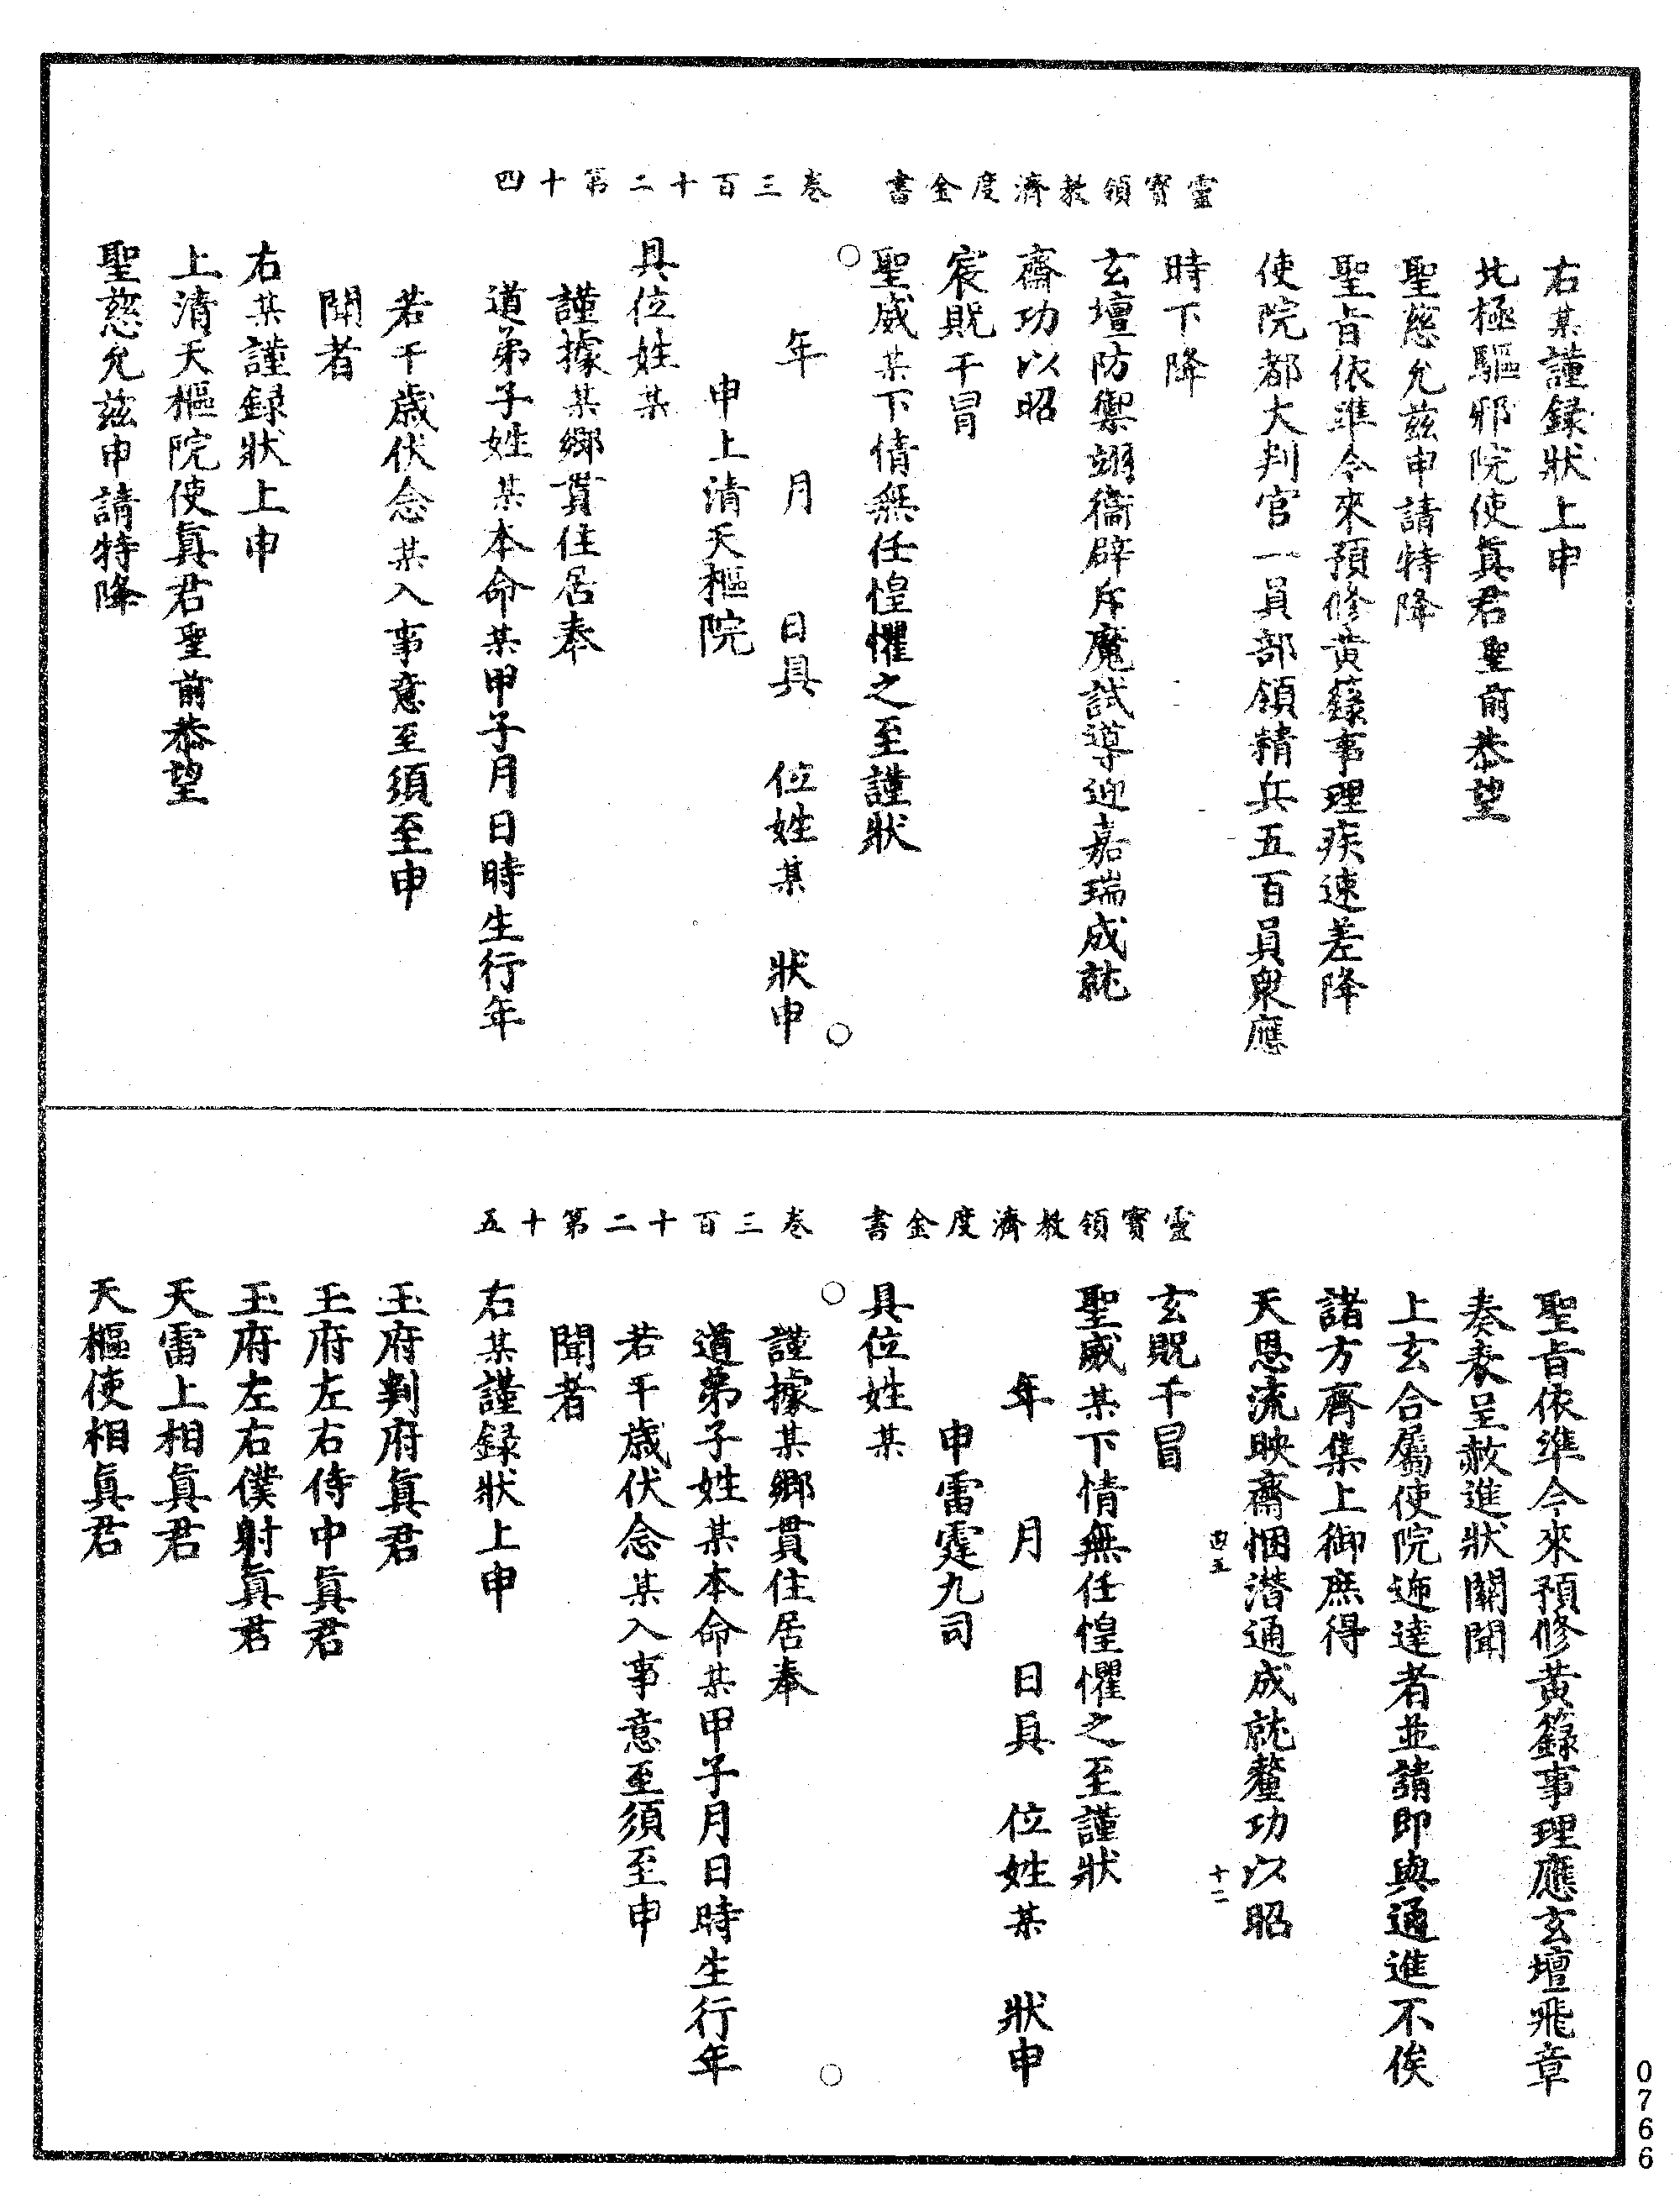 靈寶領教濟度金書 卷三百二十第十四
右某謹録狀上申
北極驅邪院使眞君聖前恭望
聖慈允兹申請特降
聖旨依準今來預修黄籙事理疾速差降
使院都大判官一員部領精兵五百員衆應
時下降
玄壇防禦翊衞辟斥魔試導迎嘉瑞成就
齋功以昭
宸貺干冒
聖威某下情無任惶懼之至謹狀
年 月 日具 位姓某 狀申
申上清天樞院
具位姓某
謹據某鄉貫住居奉
道弟子姓某本命某甲子月日時生行年
若干歲伏念某入事意至須至申
聞者
右某謹録狀上申
上清天樞院使眞君聖前恭望
聖慈允兹申請特降
靈寶領教濟度金書 卷三百二十第十五
聖旨依準今來預修黄籙事理應玄壇飛章
奏表呈赦進狀關聞
上玄合屬使院迤達者並請即與通進不俟
諸方齊集上御庶得
天恩流映齋悃潛通成就釐功以昭
十二
玄貺干冒
聖威某下情無任惶懼之至謹狀
年 月 日具 位姓某 狀申
申雷霆九司
具位姓某
謹據某鄉貫住居奉
道弟子姓某本命某甲子月日時生行年
若干歲伏念某入事意至須至申
聞者
右某謹録狀上申
玉府判府眞君
玉府左右侍中眞君
玉府左右僕射眞君
天雷上相眞君
天樞使相眞君
0766